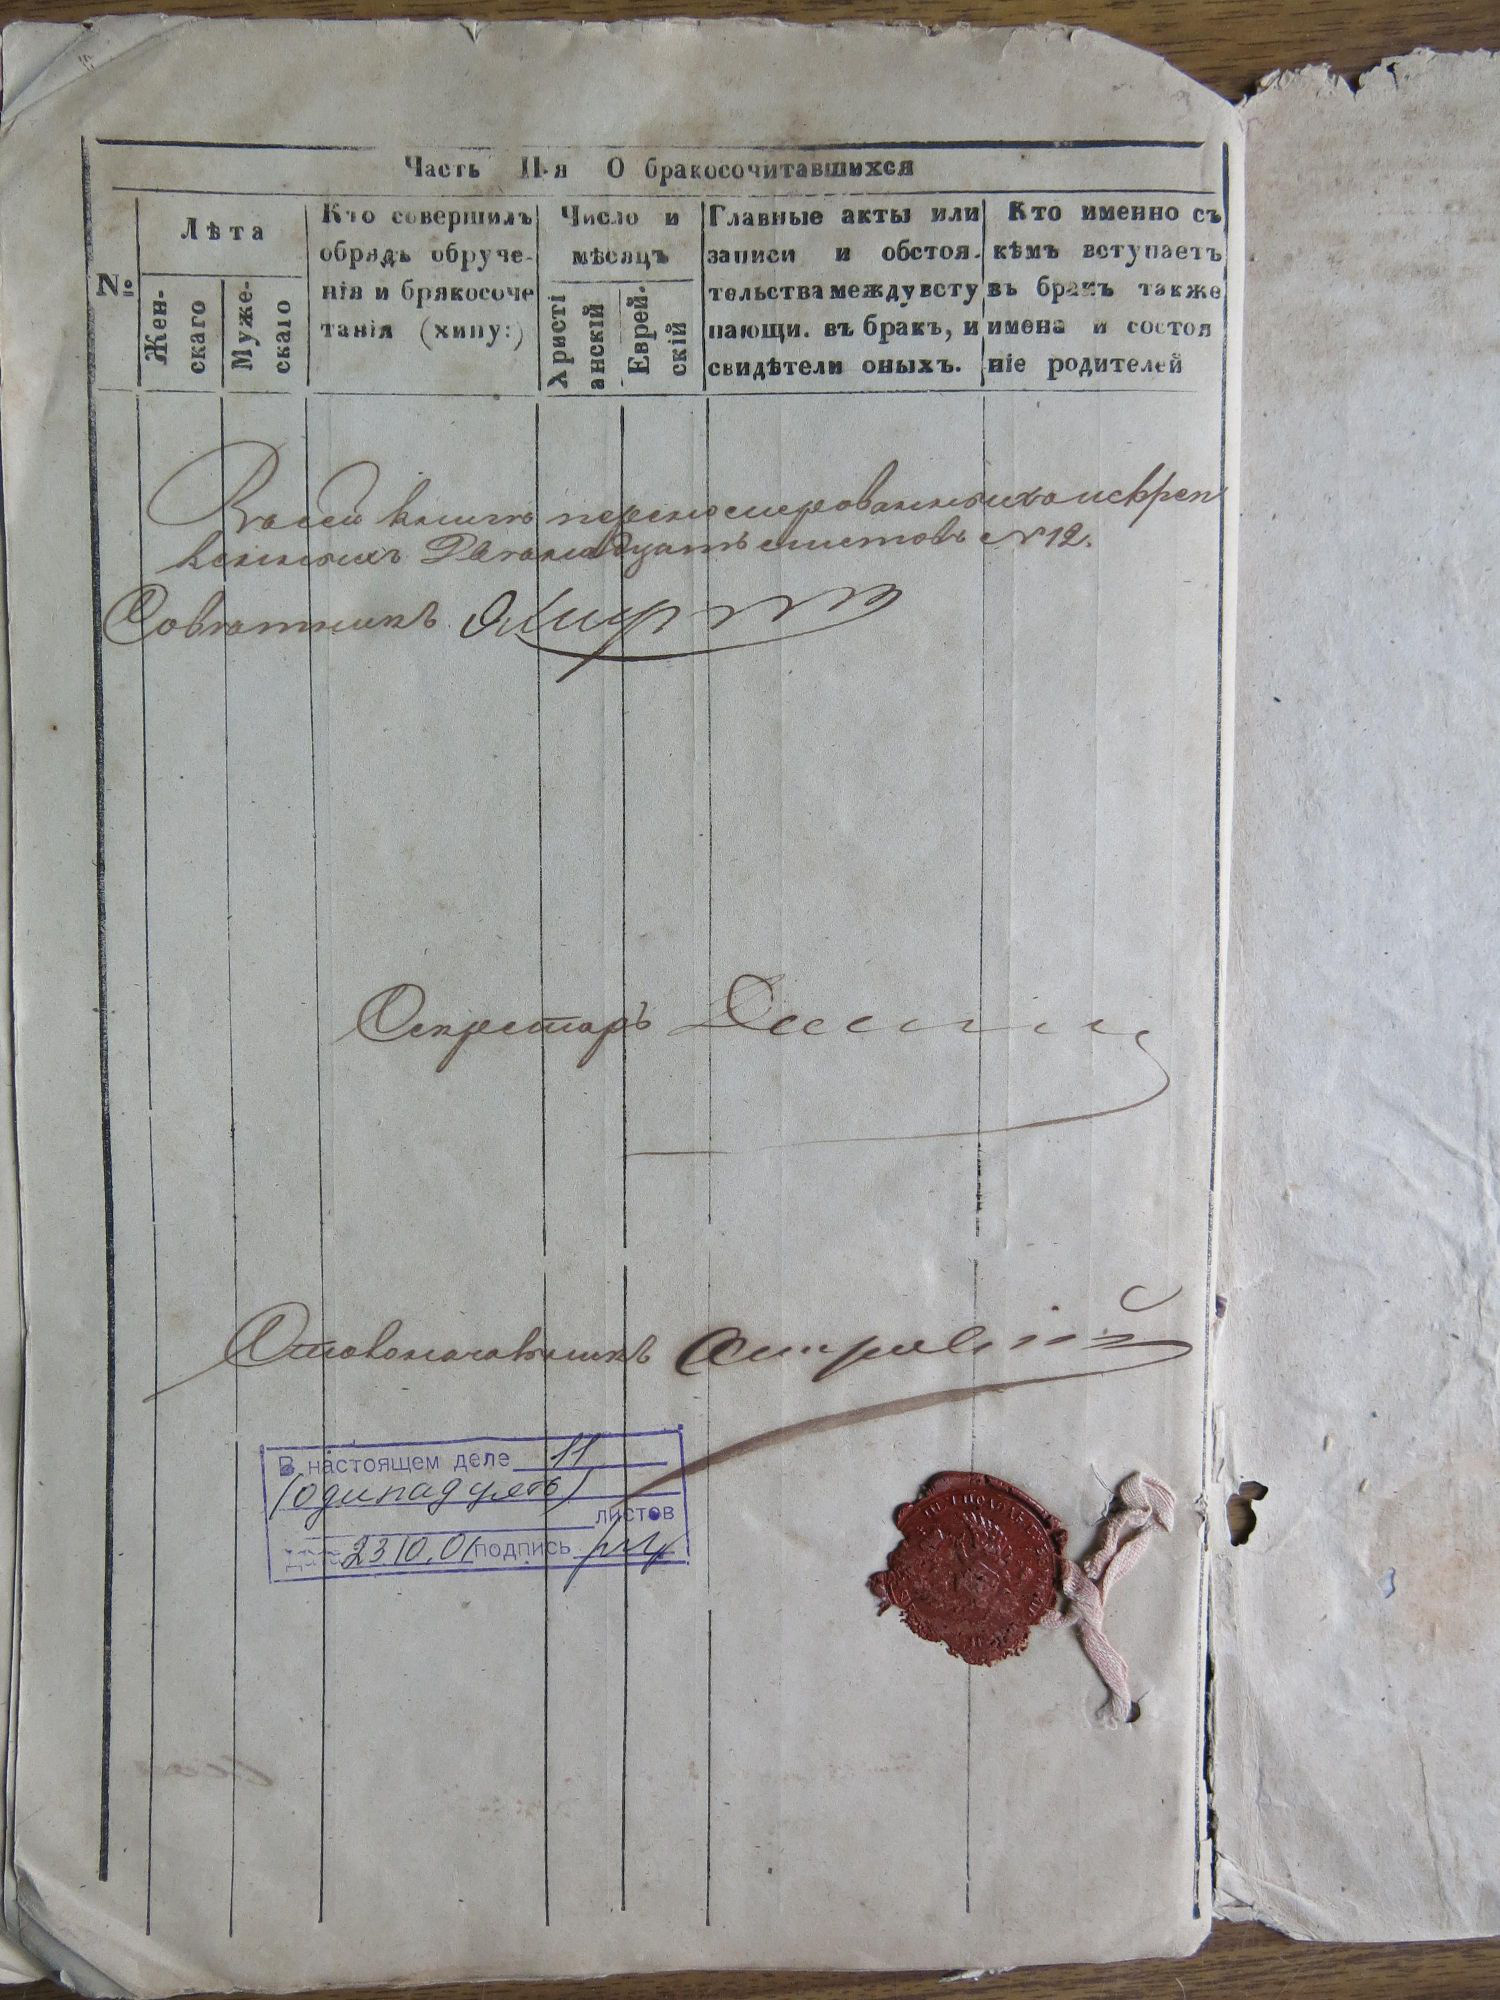 Часть II-я О бракосочитавшихся
№
Лѣта
Жен-
скаго
Муже-
скаіо
Кто совершилъ
обрядъ обруче-
нія и брякосоче
танія (хипу:)
Число и
мѣсяцъ
Христі
анскій
Еврей-
скій
Главные акты или
записи и обстоя-
тельства между всту
пающи. въ бракъ, и
свидѣтели оныхъ.
Кто именно съ
кѣмъ вступаетъ
въ бракъ также
имена и состоя
ніе родителей
В сей книгѣ перенумерованныхъ и скрѣп
ленныхъ Двѣнадцать листовъ №12.
Совѣтникъ
Секретарь
Столоначальникъ
В настоящем деле 11
(одинадцять)
листов
дата 23.10.01 подпись